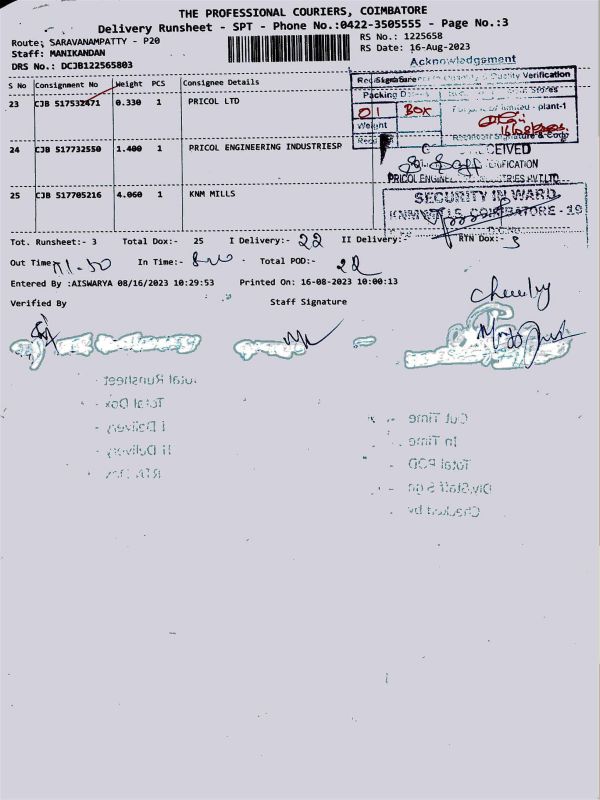 THE PROFESSIONAL COURIERS, COIMBATORE
Delivery Runsheet - SPT - Phone No.:0422-3505555 - Page No.:3
Route: SARAVANAMPATTY - P20
RS No.: 1225658
Staff: MANIKANDAN
RS Date: 16-Aug-2023
DRS No.: DCJB122565803
Acknowledgement
S No Consignment No Weight PCS Consignee Details
Quality Verification
Packing
Stores
23 CJB 517532471 0.330 1 PRICOL LTD
01 BOX
limited - plant-1
Weight
Signature & Code
24 CJB 517732550 1.400 1 PRICOL ENGINEERING INDUSTRIESP
RECEIVED
PRICOL ENGINEERING INDUSTRIES PVT LTD
25 CJB 517705216 4.060 1 KNM MILLS
SECURITY IN WARD
KNM MILLS, COIMBATORE - 19
Tot. Runsheet:- 3 Total Dox:- 25 I Delivery:- 22 II Delivery:- RTN Dox:- 3
Out Time:- 11.50 In Time:- Total POD:- 22
Entered By :AISWARYA 08/16/2023 10:29:53 Printed On: 16-08-2023 10:00:13
Verified By Staff Signature
Total Runsheet -
Total Dox -
Out Time -
I Delivery -
In Time -
II Delivery -
Total POD -
RTN Dox -
Div.Staff Sign -
Checked by -